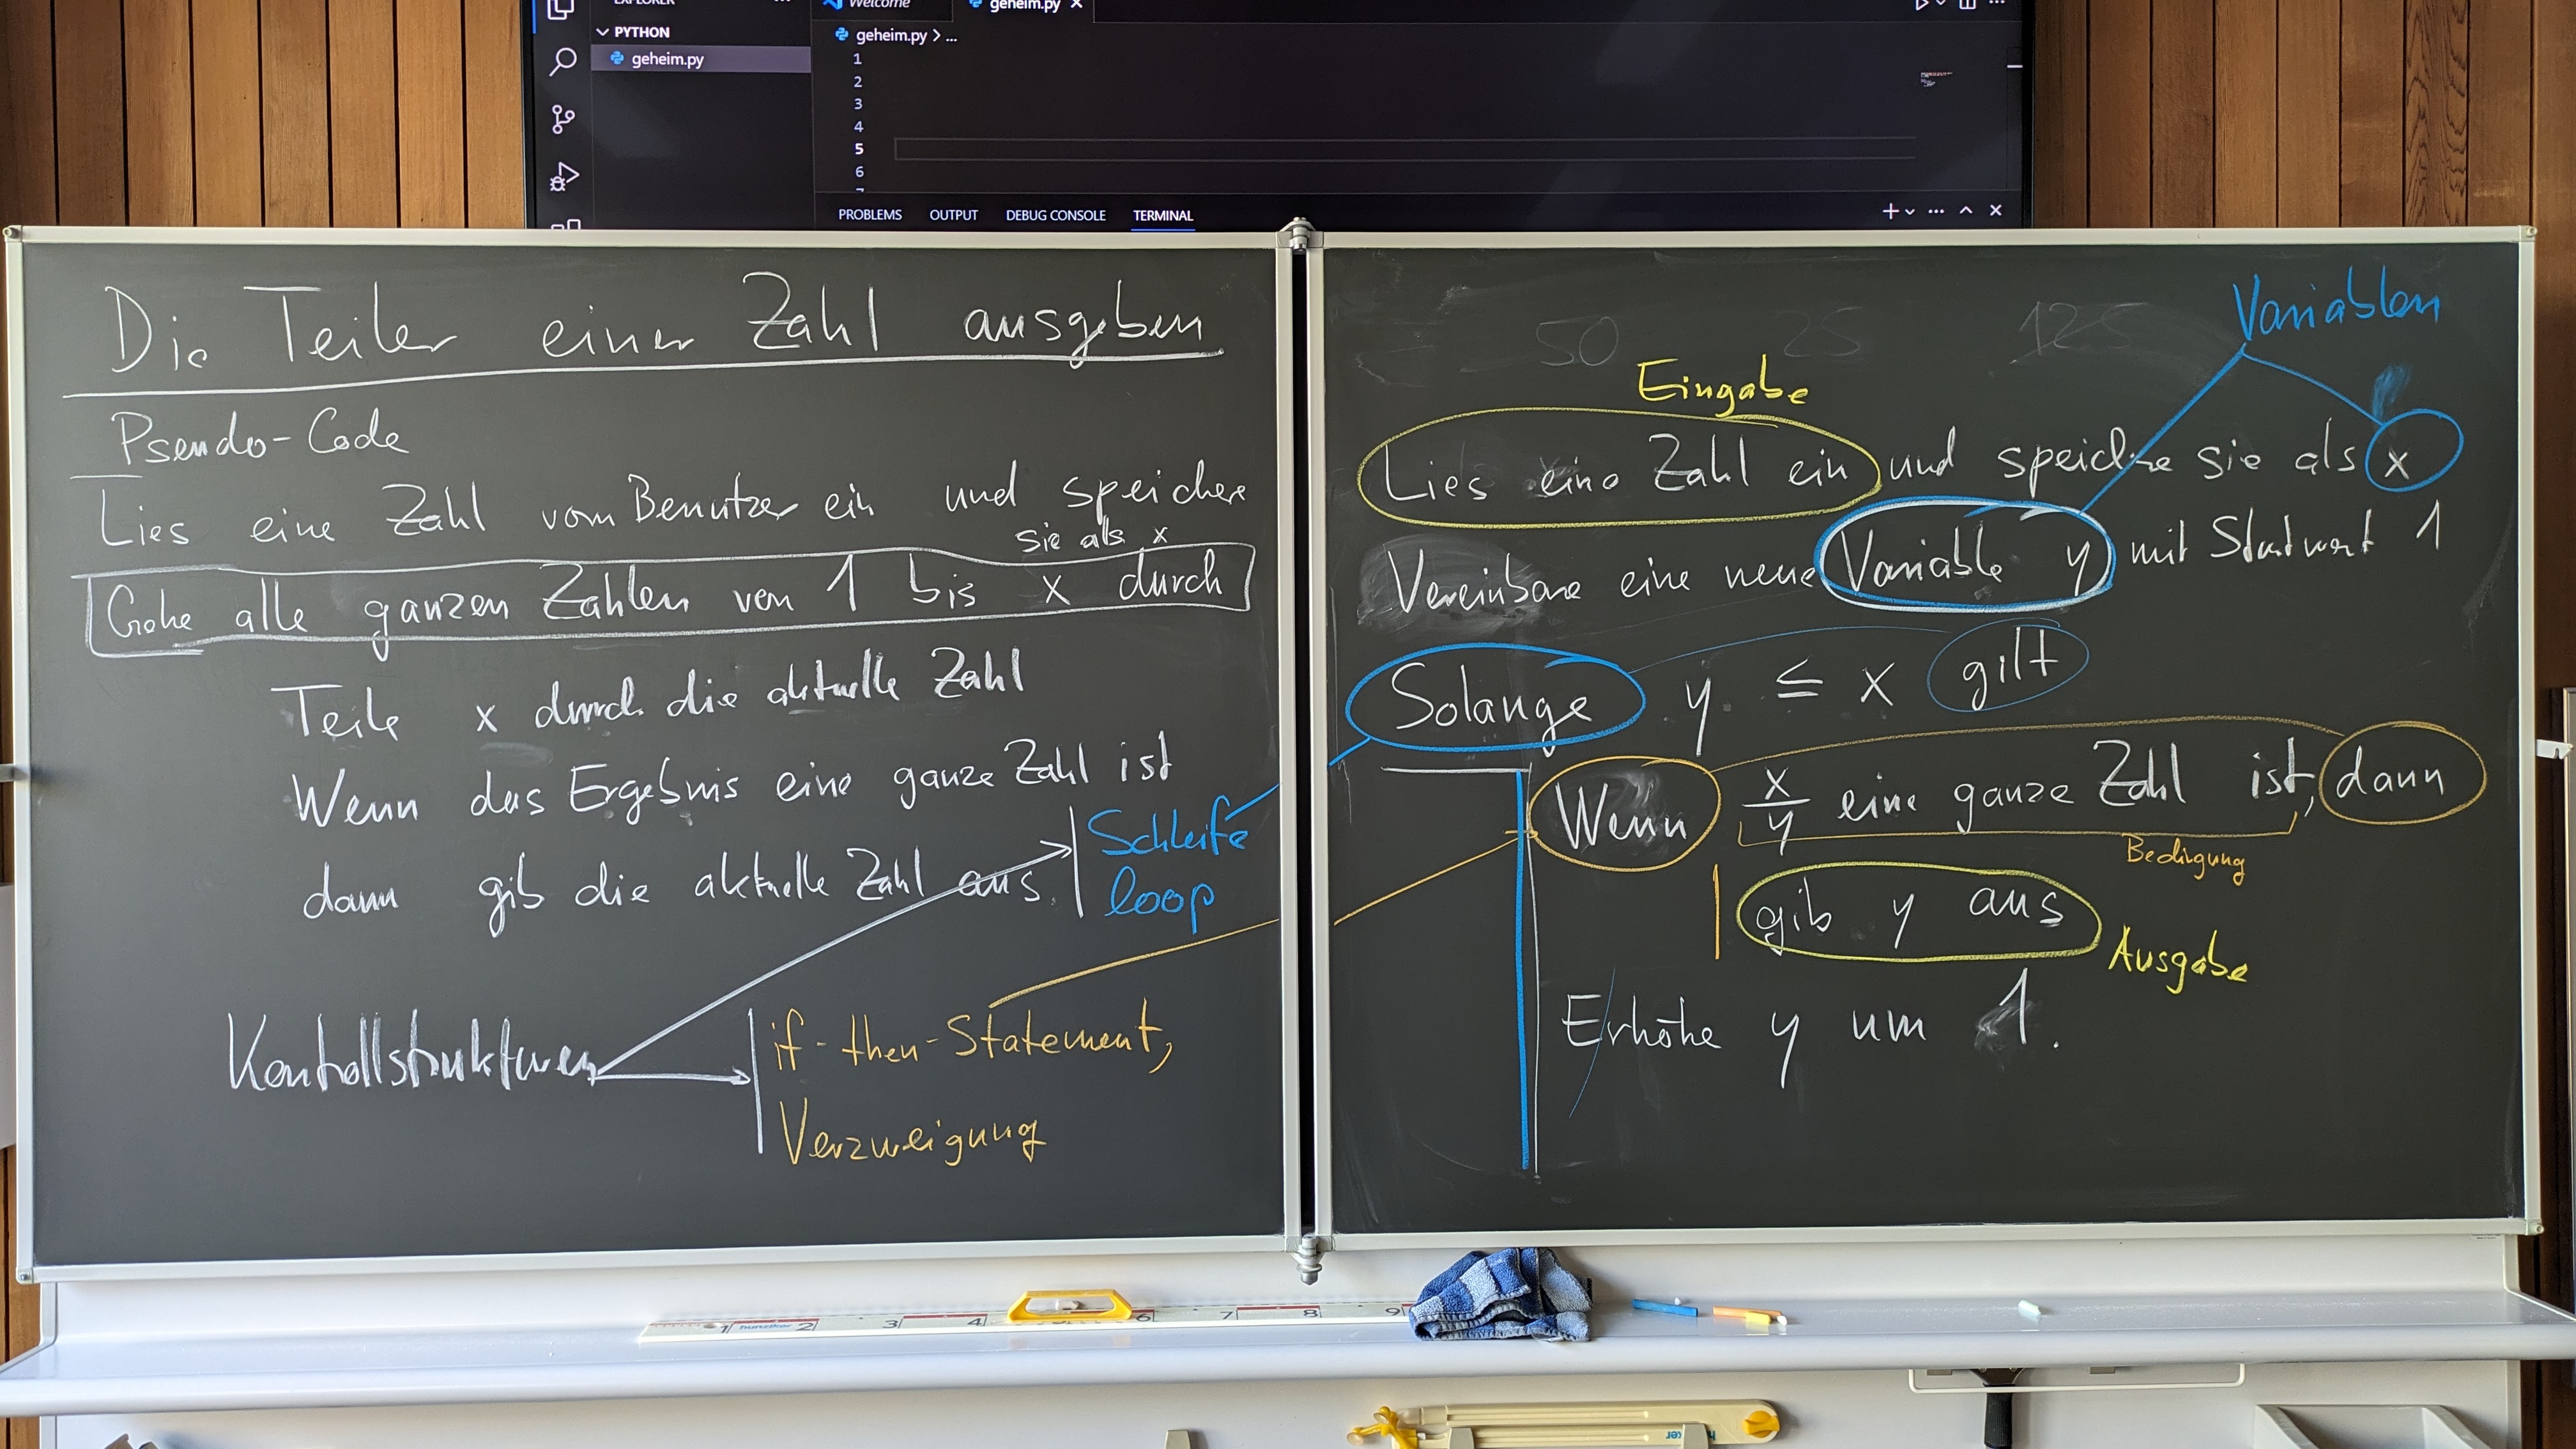 EXPLORER
PYTHON
geheim.py
Welcome
geheim.py
geheim.py > ...
1
2
3
4
5
6
PROBLEMS OUTPUT DEBUG CONSOLE TERMINAL
Die Teiler einer Zahl ausgeben
Pseudo-Code
Lies eine Zahl vom Benutzer ein und speichere
sie als x
Gehe alle ganzen Zahlen von 1 bis x durch
Teile x durch die aktuelle Zahl
Wenn das Ergebnis eine ganze Zahl ist
dann gib die aktuelle Zahl aus.
Schleife
loop
Kontrollstrukturen
if-then-Statement,
Verzweigung
50 25 125
Variablen
Eingabe
Lies eine Zahl ein und speichre sie als x
Vereinbare eine neue Variable y mit Startwert 1
Solange y ≤ x gilt
Wenn x/y eine ganze Zahl ist, dann
Bedingung
gib y aus
Ausgabe
Erhöhe y um 1.
1 2 3 4 6 7 8 9